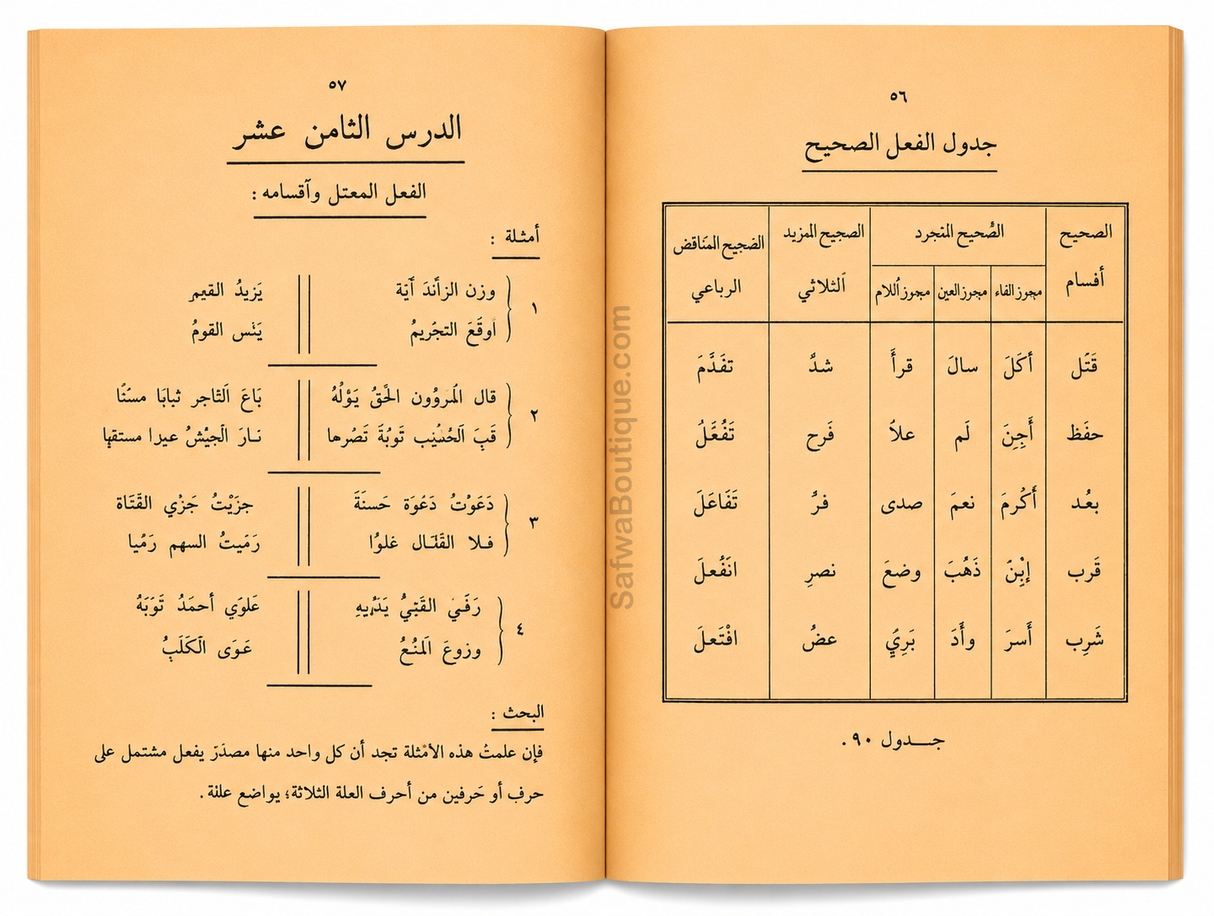 ٥٦
جدول الفعل الصحيح
الصحيح أقسام
الصُّحيح المتجرد
الصحيح المزيد الثلاثي
الصحيح المناقض الرباعي
مجوز الفاء مجوز العين مجوز أللام
قَتَل أكَلَ سالَ قرأَ شدَّ تقَدَّمَ
حفَظ أَجِنَ لَم علاُ فَرح تَفُعَّلُ
بعُد أَكْرمَ نعمَ صدى فرَّ تَفَاعَلَ
قَرب إبْنٌ ذَهُبَ وضعَ نصرِ انَفُعلَ
شَرِب أَسرَ وأَدَ بَرِيَ عضُ افْتَعلَ
جـــدول ٩٠.
٥٧
الدرس الثامن عشر
الفعل المعتل وآقسامه :
أمثـلة :
١
وزن الزأئدَ آيَة يَزيدُ القيم
اَوقَعَ التجُريمُ يَنْس القومُ
٢
قال المُروُون الحَّقُ يَوْلُهُ بَاعَ الَتاجر ثبابَا مسنًا
قَبَ تَوبُةَ تَصُرها نـارَ الْجيْشُ عيرا مستقها
٣
دَعَوْتُ دَعُوَة حَسنةَ جزَيْتُ جَزْي القَتَاة
فـلا القَتَـال غلوُا رَمَيتُ السهم رَمُيا
٤
رَفَـيَ القَتِيُّ يَدَيهِ عَلوَي أحمَدُ تَوَبَهُ
وزوعَ المَنُعُ عَوَى الَكَلَبُ
البحث :
فإن علمتُ هذه الأمْثلة تجد أن كل واحد منها مصدَرَ يفعل مشتمل على
حرف أو حَرفين من أحرف العلة الثلاثة؛ يواضع علىة .
SafwaBoutique.com